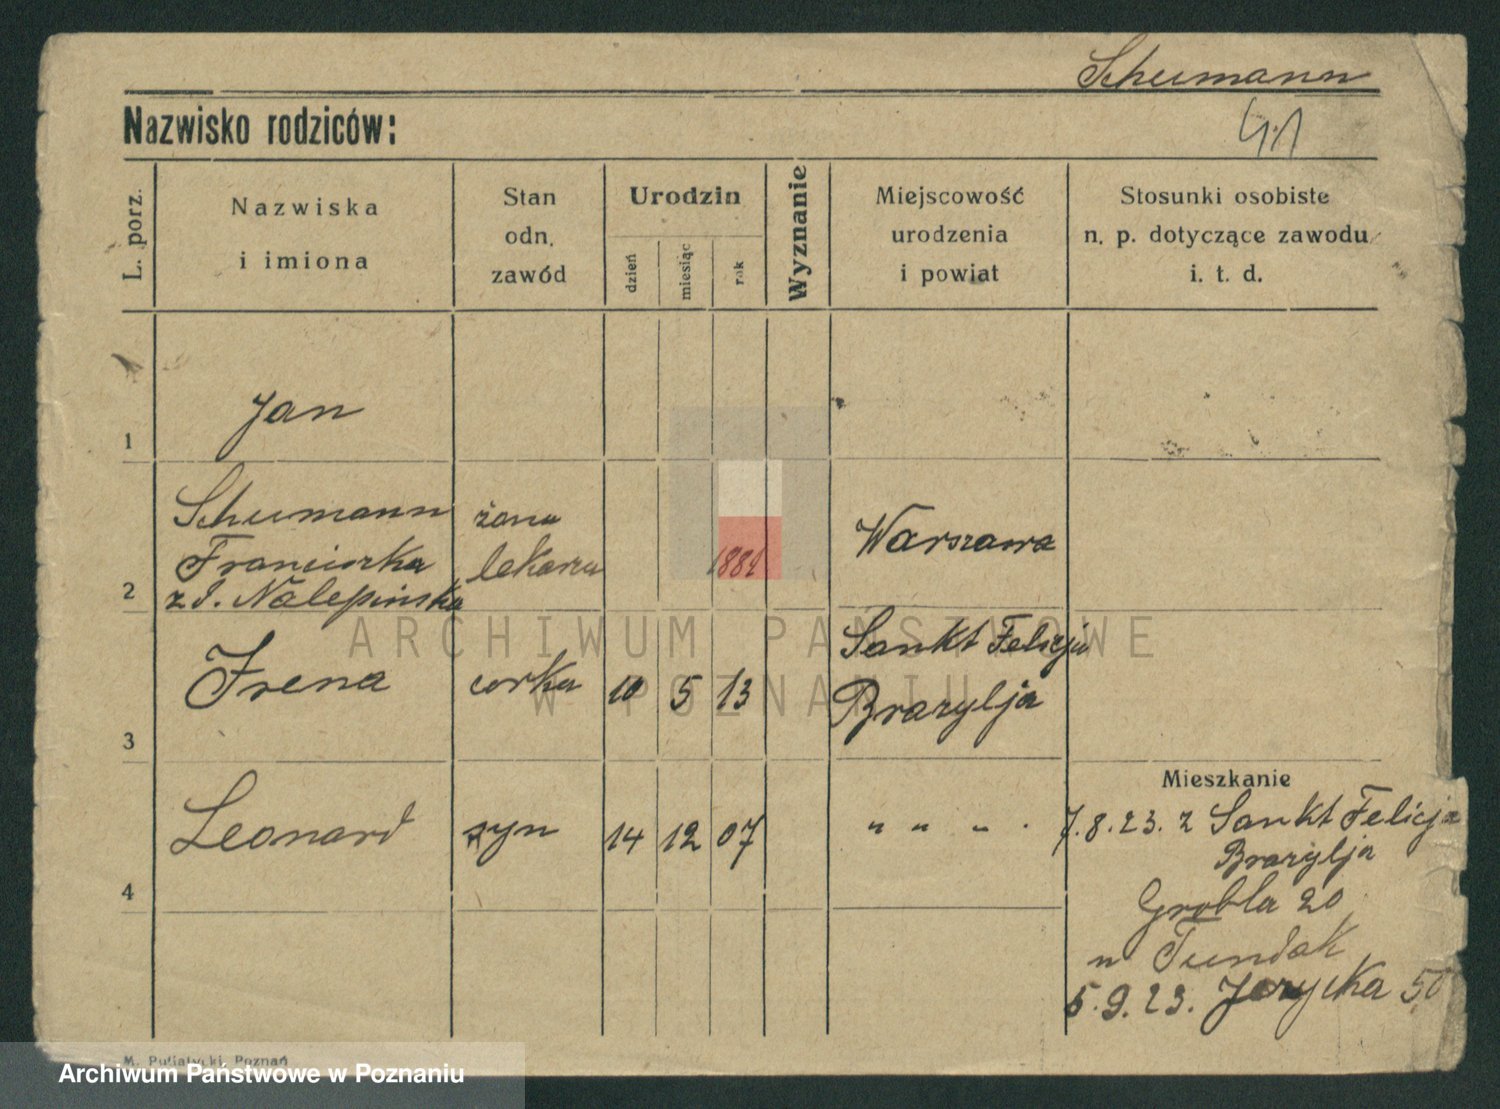 Schumann
Nazwisko rodziców:
L. porz.
Nazwiska
i imiona
Stan
odn.
zawód
Urodzin
dzień
miesiąc
rok
Wyznanie
Miejscowość
urodzenia
i powiat
Stosunki osobiste
n. p. dotyczące zawodu
i. t. d.
1
Jan
2
Schumann
Franciszka
z d. Nalepińska
żona
lekarza
Warszawa
3
Irena
corka
10 5 13
Sankt Felicja
Brazylja
4
Leonard
syn
14 12 07
" " " "
Mieszkanie
7.8.23. z Sankt Felicja
Brazylja
Grobla 20
u
5.9.23. 50
M. Putiatycki, Poznań
ARCHIWUM PAŃSTWOWE
W POZNANIU
Archiwum Państwowe w Poznaniu